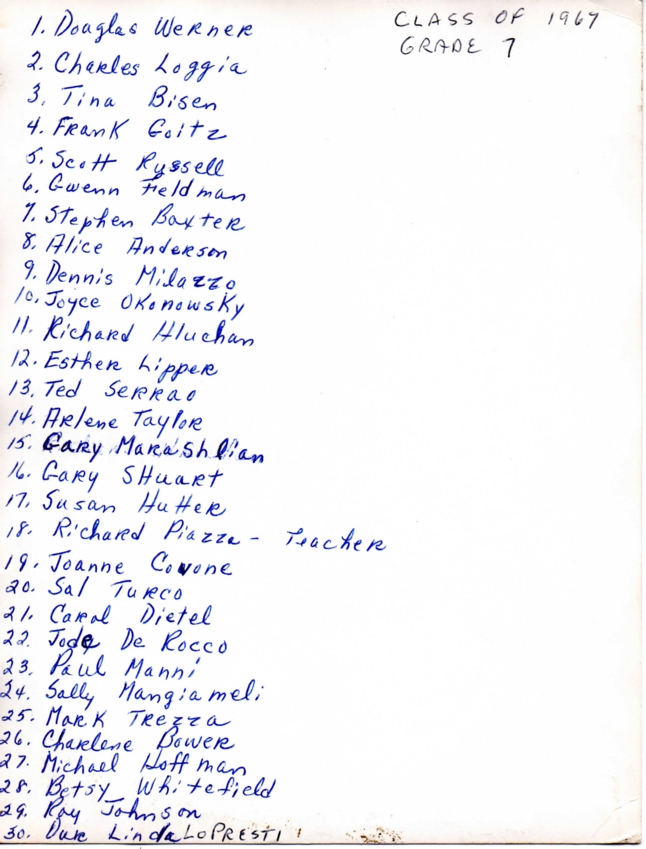 CLASS OF 1967
GRADE 7
1. Douglas Werner
2. Charles Loggia
3. Tina Bisen
4. Frank Goitz
5. Scott Ryssell
6. Gwenn Feldman
7. Stephen Baxter
8. Alice Anderson
9. Dennis Milazzo
10. Joyce Okonowsky
11. Richard Hluchan
12. Esther Lipper
13. Ted Serrao
14. Arlene Taylor
15. Gary Marashlian
16. Gary SHuart
17. Susan Hutter
18. Richard Piazza - Teacher
19. Joanne Covone
20. Sal Turco
21. Carol Dietel
22. Jode De Rocco
23. Paul Manni
24. Sally Mangiameli
25. Mark Trezza
26. Charlene Bower
27. Michael Hoffman
28. Betsy Whitefield
29. Ray Johnson
30. Linda LOPRESTI